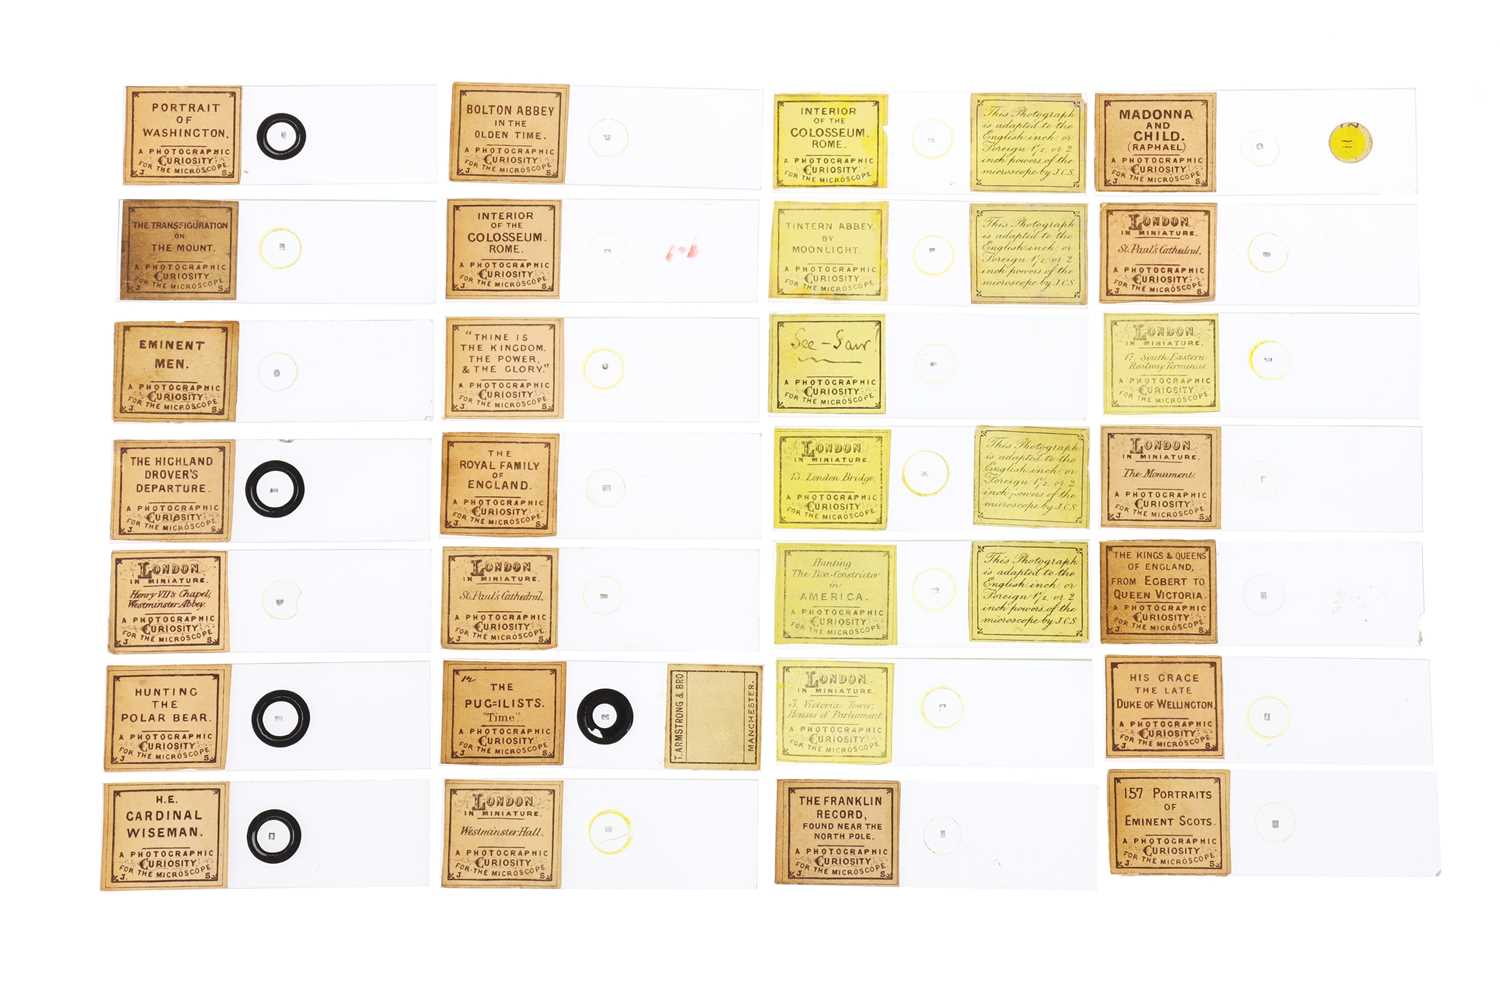 PORTRAIT
OF
WASHINGTON.
A PHOTOGRAPHIC
CURIOSITY
FOR THE MICROSCOPE
J. S.
THE TRANSFIGURATION
ON
THE MOUNT.
A PHOTOGRAPHIC
CURIOSITY
FOR THE MICROSCOPE
J. S.
EMINENT
MEN.
A PHOTOGRAPHIC
CURIOSITY
FOR THE MICROSCOPE
J. S.
THE HIGHLAND
DROVER'S
DEPARTURE.
A PHOTOGRAPHIC
CURIOSITY
FOR THE MICROSCOPE
J. S.
LONDON
IN MINIATURE.
Henry VII's Chapel,
Westminster Abbey.
A PHOTOGRAPHIC
CURIOSITY
FOR THE MICROSCOPE
J. S.
HUNTING
THE
POLAR BEAR.
A PHOTOGRAPHIC
CURIOSITY
FOR THE MICROSCOPE
J. S.
H.E.
CARDINAL
WISEMAN.
A PHOTOGRAPHIC
CURIOSITY
FOR THE MICROSCOPE
J. S.
BOLTON ABBEY
IN THE
OLDEN TIME.
A PHOTOGRAPHIC
CURIOSITY
FOR THE MICROSCOPE
J. S.
INTERIOR
OF THE
COLOSSEUM.
ROME.
A PHOTOGRAPHIC
CURIOSITY
FOR THE MICROSCOPE
J. S.
"THINE IS
THE KINGDOM,
THE POWER,
& THE GLORY."
A PHOTOGRAPHIC
CURIOSITY
FOR THE MICROSCOPE
J. S.
THE
ROYAL FAMILY
OF
ENGLAND.
A PHOTOGRAPHIC
CURIOSITY
FOR THE MICROSCOPE
J. S.
LONDON
IN MINIATURE.
St. Paul's Cathedral.
A PHOTOGRAPHIC
CURIOSITY
FOR THE MICROSCOPE
J. S.
THE
PUGILISTS.
"Time"
A PHOTOGRAPHIC
CURIOSITY
FOR THE MICROSCOPE
J. S.
T. ARMSTRONG & BRO
MANCHESTER.
LONDON
IN MINIATURE.
Westminster Hall.
A PHOTOGRAPHIC
CURIOSITY
FOR THE MICROSCOPE
J. S.
INTERIOR
OF THE
COLOSSEUM.
ROME.
A PHOTOGRAPHIC
CURIOSITY
FOR THE MICROSCOPE
J. S.
This Photograph
is adapted to the
English inch; or
Foreign 1½, or 2
inch powers of the
microscope by J.C.S.
TINTERN ABBEY
BY
MOONLIGHT.
A PHOTOGRAPHIC
CURIOSITY
FOR THE MICROSCOPE
J. S.
This Photograph
is adapted to the
English inch; or
Foreign 1½, or 2
inch powers of the
microscope by J.C.S.
See-Saw
A PHOTOGRAPHIC
CURIOSITY
FOR THE MICROSCOPE
J. S.
LONDON
IN MINIATURE.
13. London Bridge.
A PHOTOGRAPHIC
CURIOSITY
FOR THE MICROSCOPE
J. S.
This Photograph
is adapted to the
English inch; or
Foreign 1½, or 2
inch powers of the
microscope by J.C.S.
Hunting
The Boa-Constrictor
in
AMERICA.
A PHOTOGRAPHIC
CURIOSITY
FOR THE MICROSCOPE
J. S.
This Photograph
is adapted to the
English inch; or
Foreign 1½, or 2
inch powers of the
microscope by J.C.S.
LONDON
IN MINIATURE.
3. Victoria Tower,
Houses of Parliament.
A PHOTOGRAPHIC
CURIOSITY
FOR THE MICROSCOPE
J. S.
THE FRANKLIN
RECORD,
FOUND NEAR THE
NORTH POLE.
A PHOTOGRAPHIC
CURIOSITY
FOR THE MICROSCOPE
J. S.
MADONNA
AND
CHILD.
(RAPHAEL)
A PHOTOGRAPHIC
CURIOSITY
FOR THE MICROSCOPE
J. S.
LONDON
IN MINIATURE.
St. Paul's Cathedral.
A PHOTOGRAPHIC
CURIOSITY
FOR THE MICROSCOPE
J. S.
LONDON
IN MINIATURE.
17. South Eastern
Railway Terminus
A PHOTOGRAPHIC
CURIOSITY
FOR THE MICROSCOPE
J. S.
LONDON
IN MINIATURE.
The Monument.
A PHOTOGRAPHIC
CURIOSITY
FOR THE MICROSCOPE
J. S.
THE KINGS & QUEENS
OF ENGLAND,
FROM EGBERT TO
QUEEN VICTORIA.
A PHOTOGRAPHIC
CURIOSITY
FOR THE MICROSCOPE
J. S.
HIS GRACE
THE LATE
DUKE OF WELLINGTON.
A PHOTOGRAPHIC
CURIOSITY
FOR THE MICROSCOPE
J. S.
157 PORTRAITS
OF
EMINENT SCOTS.
A PHOTOGRAPHIC
CURIOSITY
FOR THE MICROSCOPE
J. S.